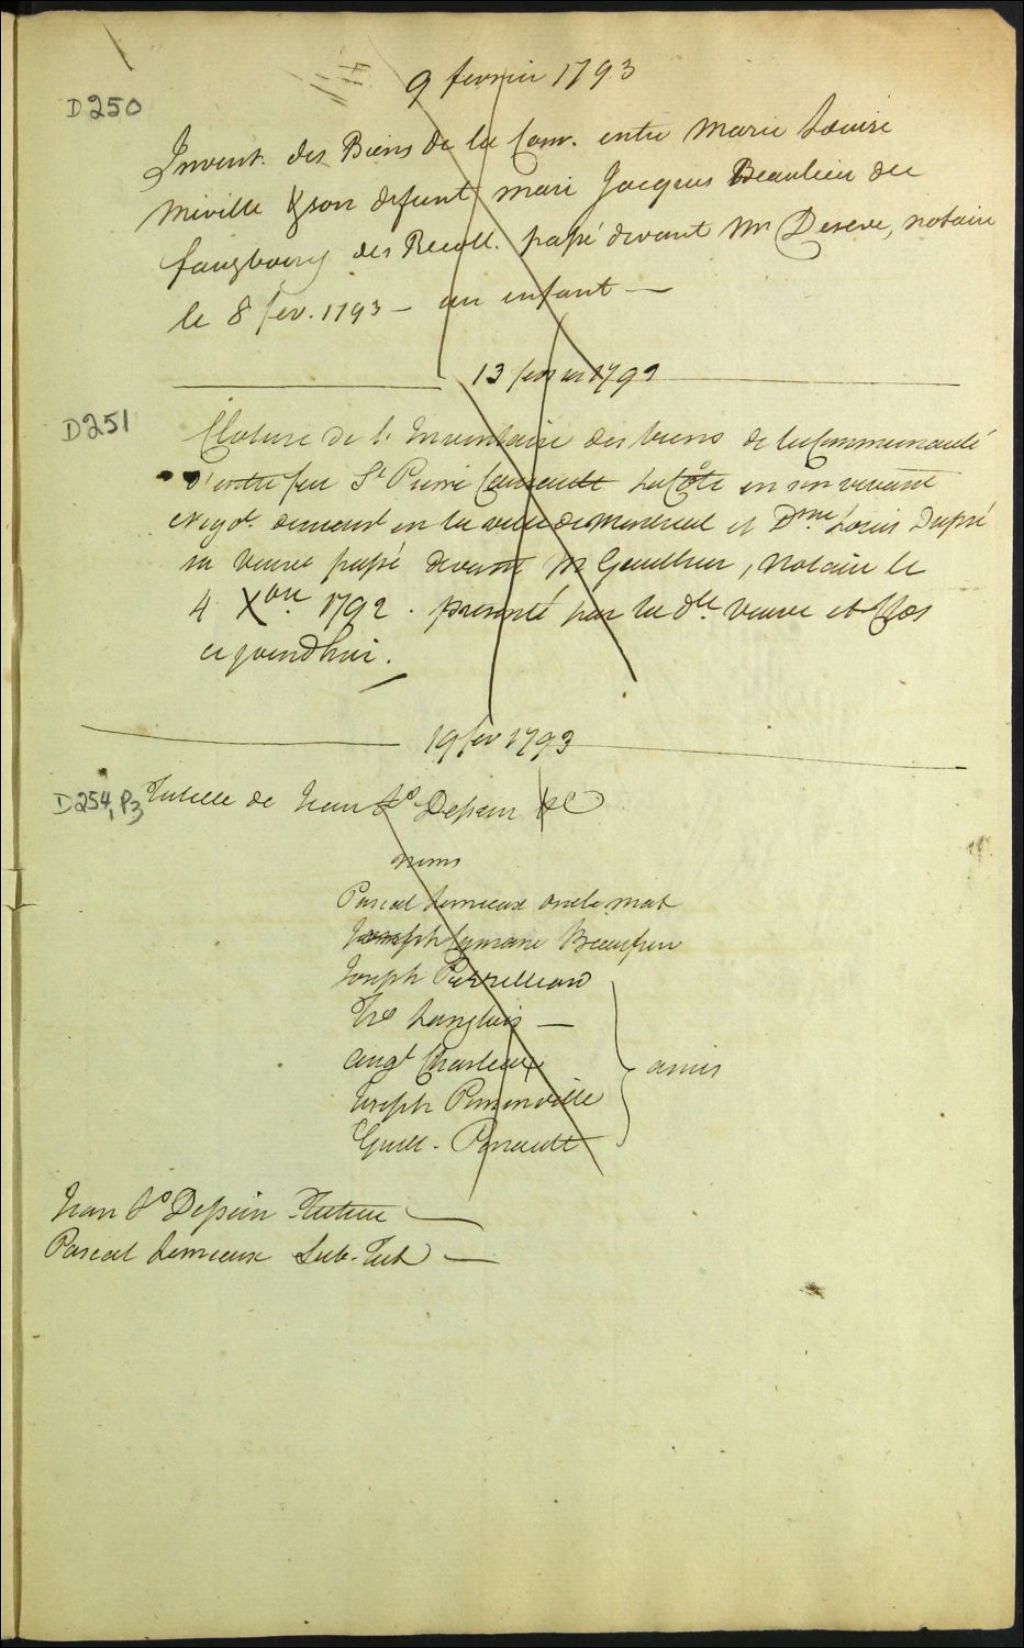 9 fevrier 1793
D250
Invent. des Biens de la Com. entre Marie Louise
Miville & son defunt mari Jacques Beaulieu du
fauxbourg des Recoll. passé devant Mr Deseve, notaire
le 8 fev. 1793 – un enfant –
13 fevrier 1793
D251
Cloture de l. Inventaire des biens de la Communauté
d'entre feu Sr Pierre LaCôte en son vivant
Negot. demeurt en la ville de Montreal et Dme Louis Dupré
sa veuve passé devant Mr Gauthier, Notaire le
4 Xbre 1792. presenté par la dte veuve et Clos
cejourdhui.
19 fev 1793
D254, P3
Tutelle de Jean Bo Depein
noms
Pascal Lemieux oncle mat
Joseph Beaufrere
Joseph
Langlois –
Augt Charlevoix
Joseph
Guill. Perrault
amis
Jean Bo Depein Tuteur –
Pascal Lemieux Sub-Tut –